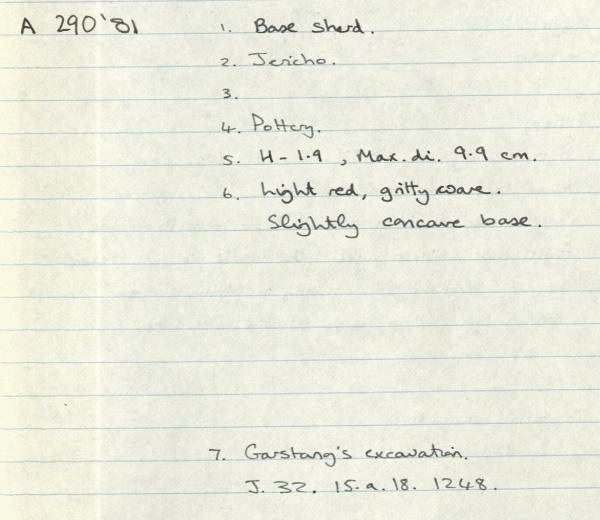 A 290'81 1. Base sherd.
2. Jericho.
3.
4. Pottery.
5. H - 1.9 , Max. di. 9.9 cm.
6. Light red, gritty ware.
Slightly concave base.
7. Garstang's excavation.
J. 32. 15. a. 18. 1248.